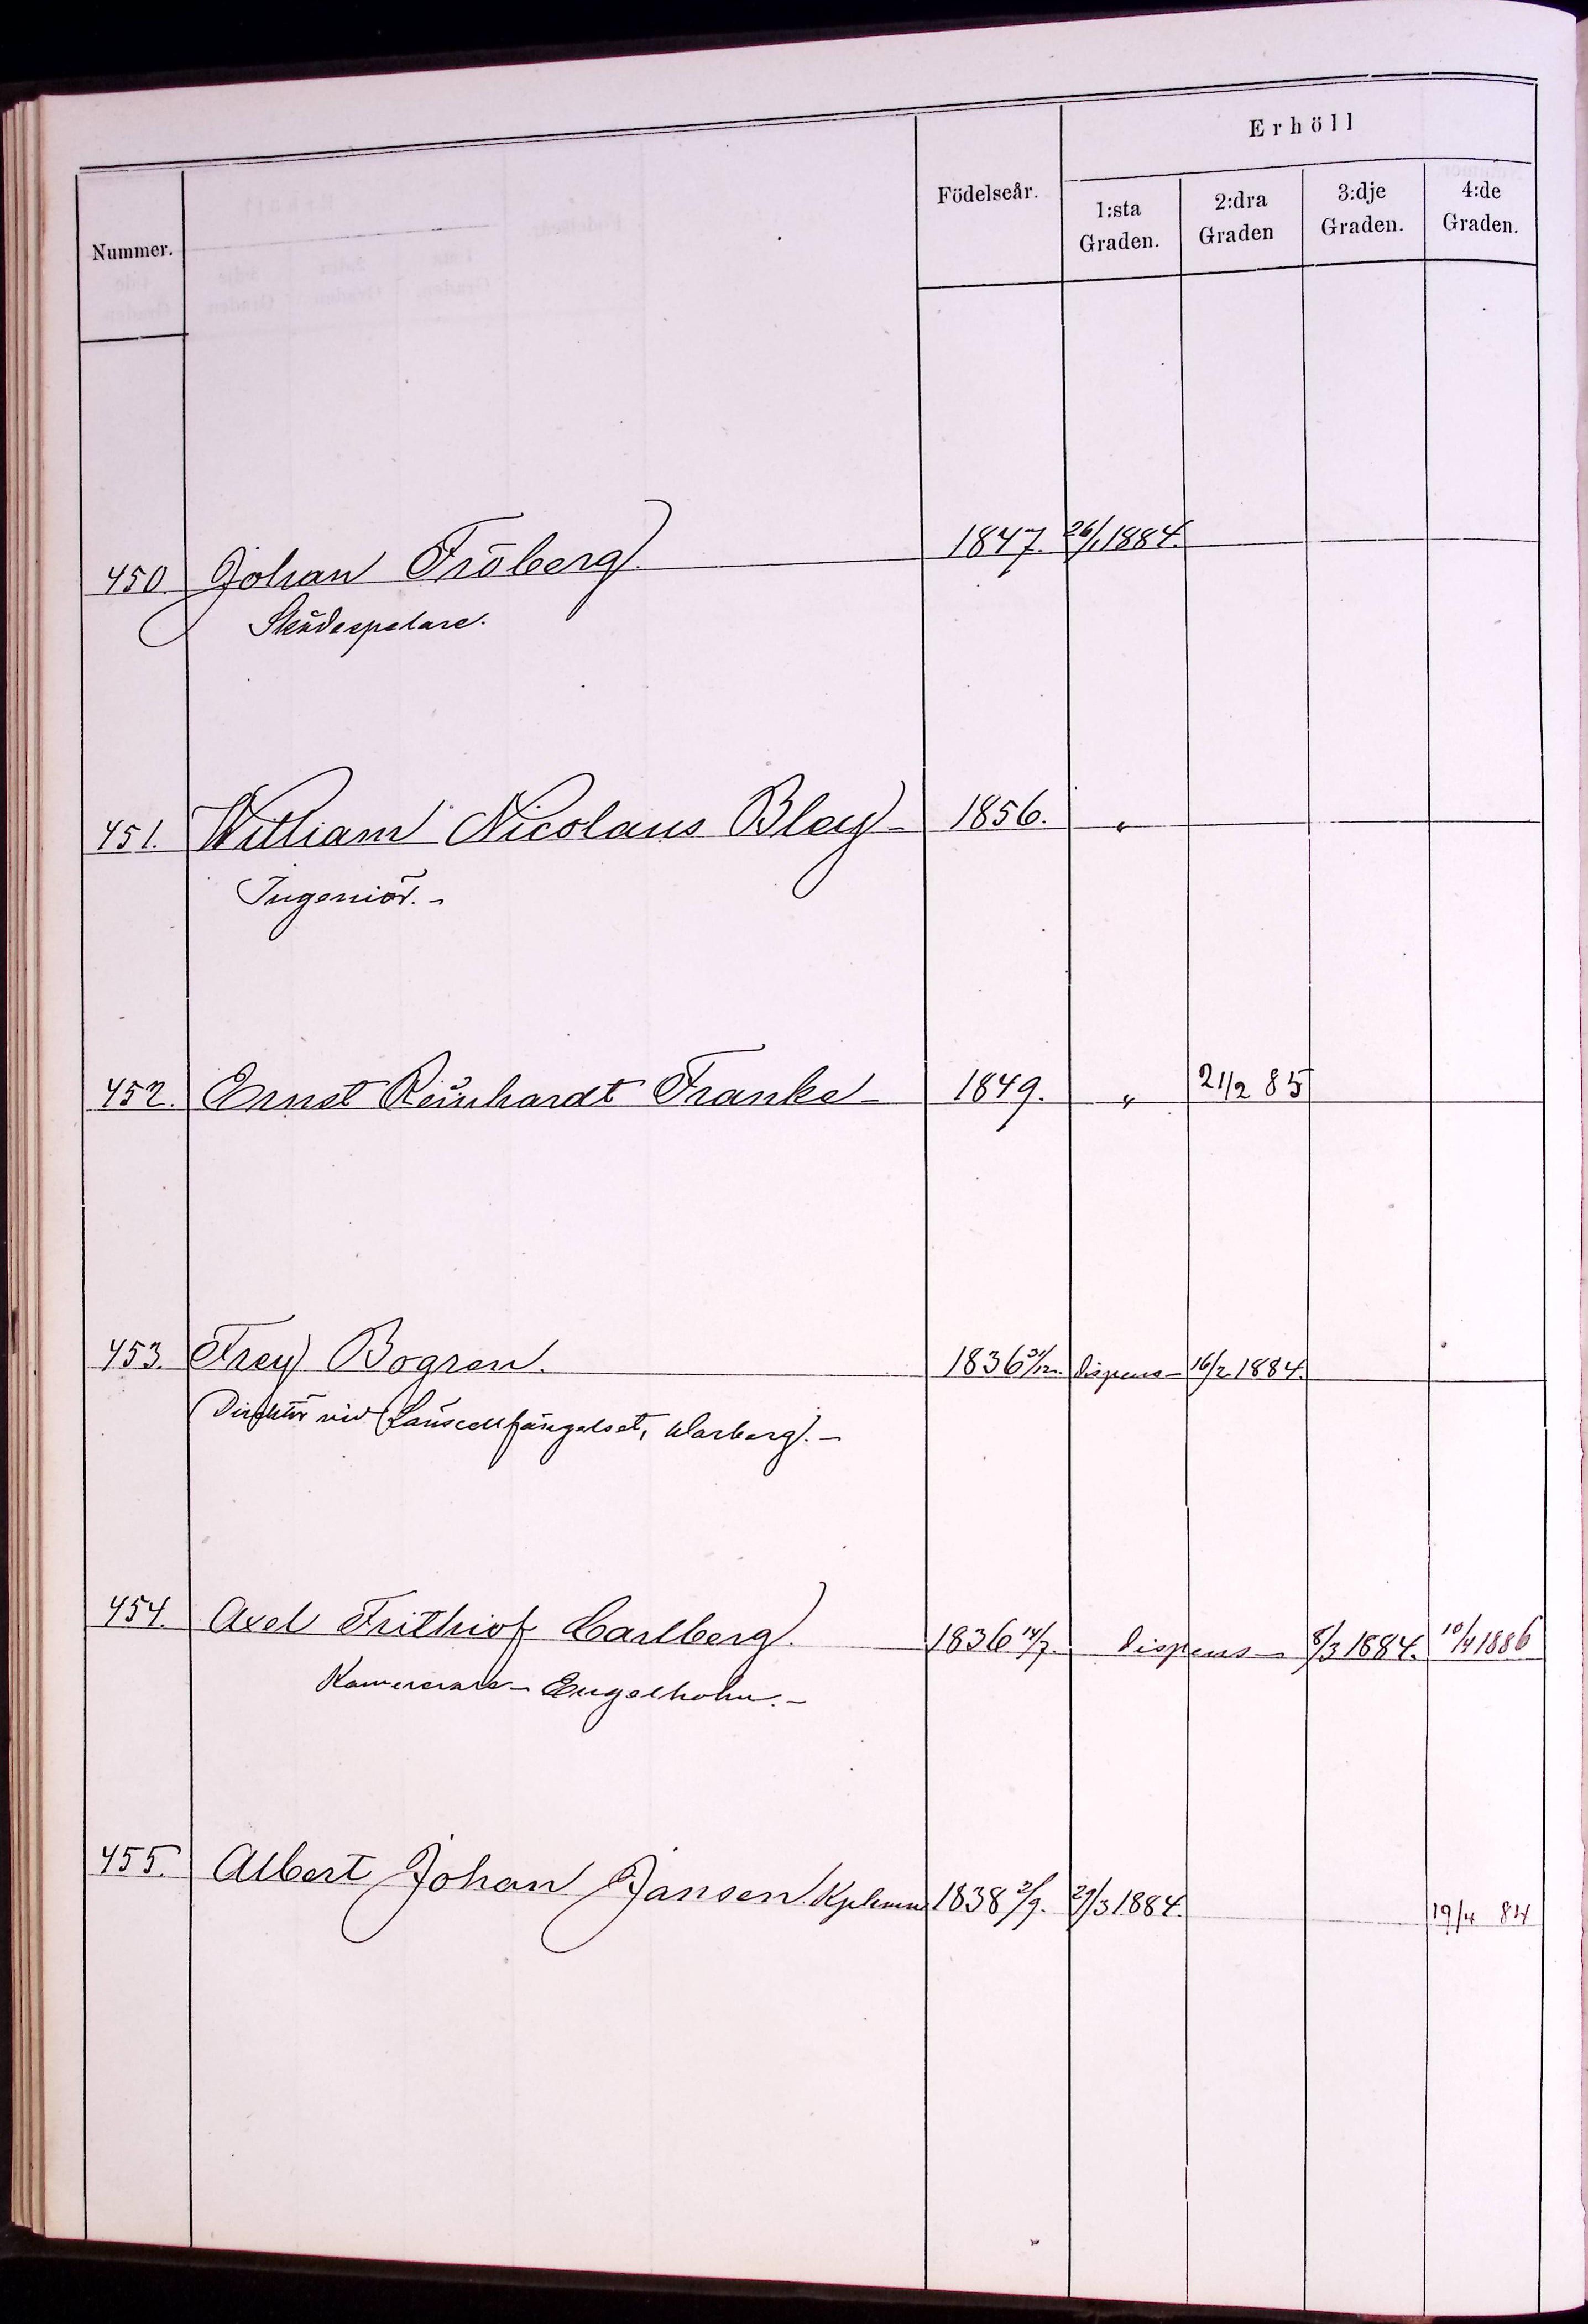 Erhöll
Nummer.
Födelseår.
1:sta Graden.
2:dra Graden
3:dje Graden.
4:de Graden.
450. Johan Fröberg. 1847. 26/1 1884.
Skådespelare.
451. William Nicolaus Bley - 1856. "
Ingeniör. -
452. Ernst Reinhardt Franke - 1849. " 21/2 85
453. Frey Bogren. 1836 31/12. dispens - 16/2 1884.
Direktör vid Länscellfängelset, Warberg. -
454. Axel Frithiof Carlberg. 1836 14/7. dispens - 8/3 1884. 10/4 1886
Kamrerare - Engelholm. -
455. Albert Johan Jansen. 1838 2/9. 29/3 1884. 19/4 84